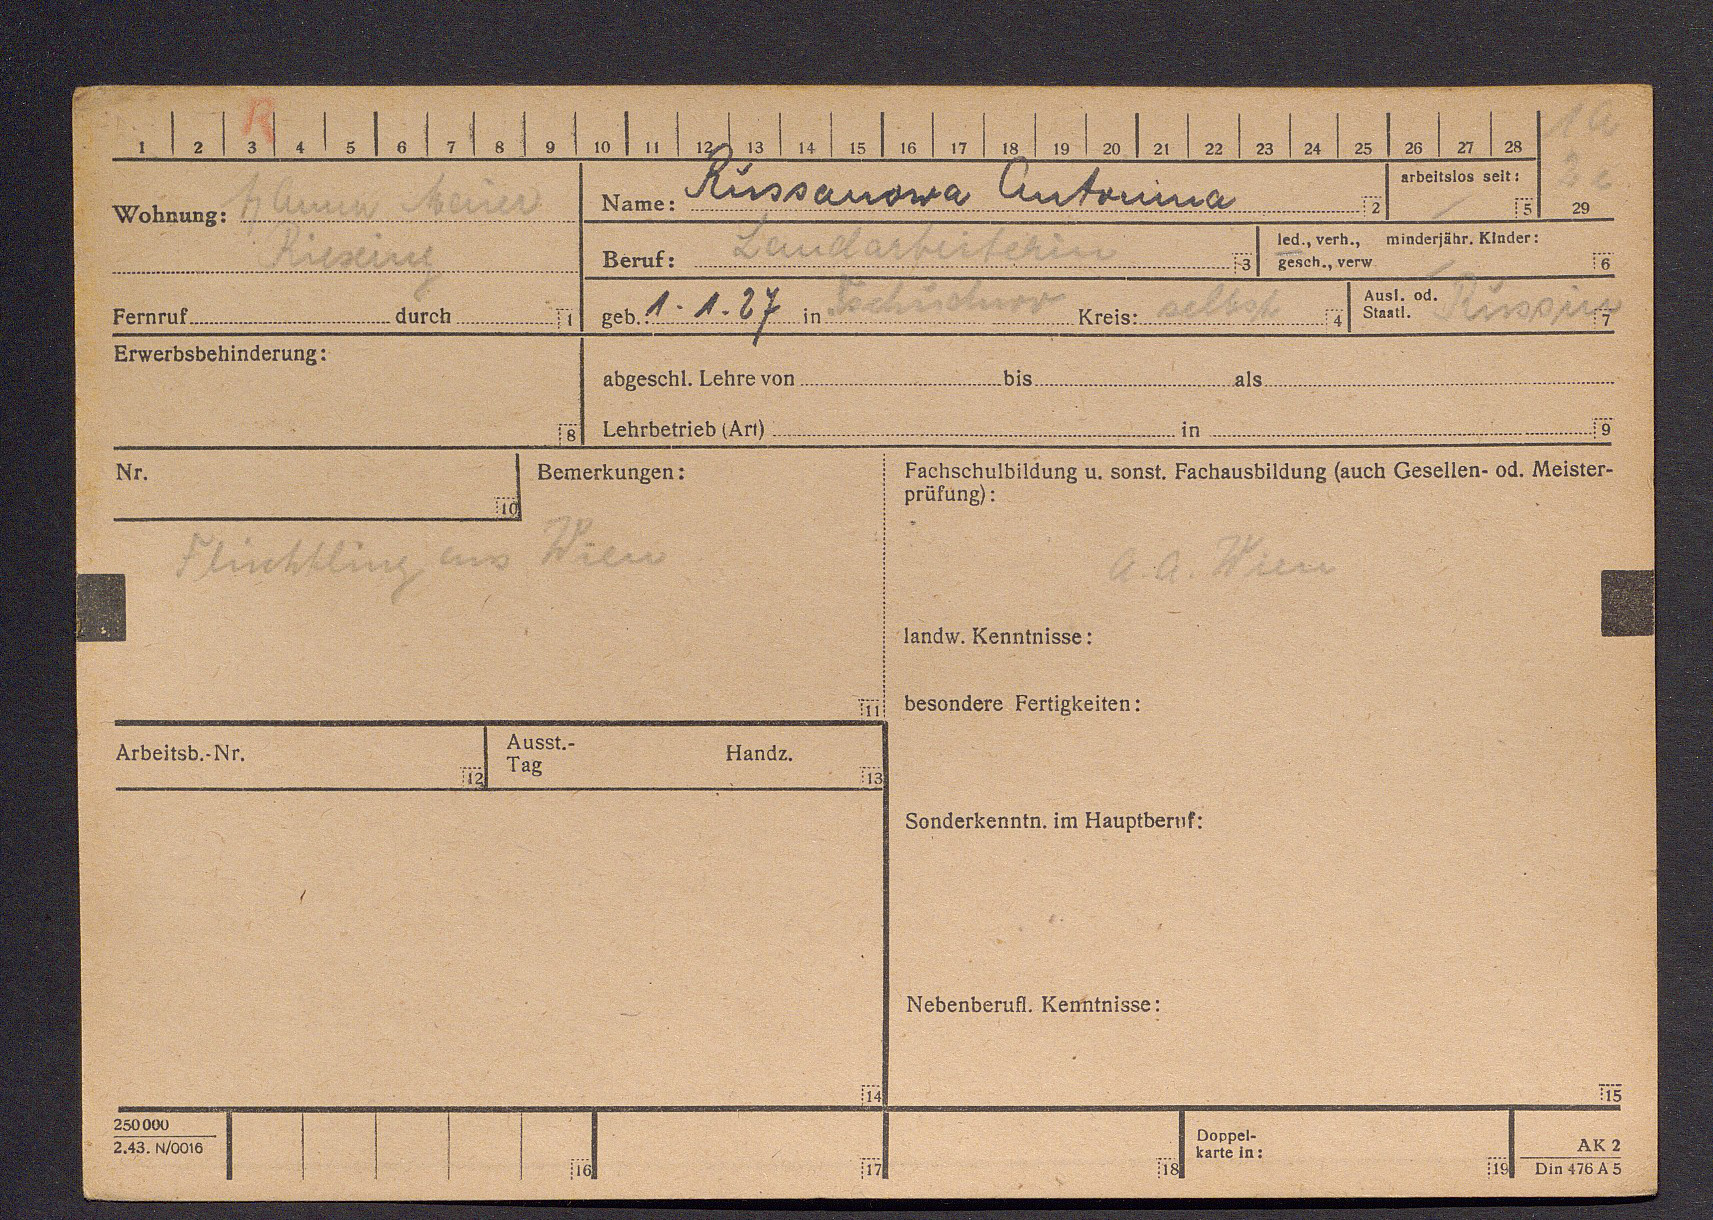 R
1 2 3 4 5 6 7 8 9 10 11 12 13 14 15 16 17 18 19 20 21 22 23 24 25 26 27 28
1a
29
Wohnung: Anna Maier
Riexing
Fernruf durch 1
Name: Russanowa Antonina 2
arbeitslos seit: 5
Beruf: Landarbeiterin 3
led., verh., minderjähr. Kinder:
gesch., verw 6
geb. 1.1.27 in Kreis: selbst 4
Ausl. od.
Staatl. Russin 7
Erwerbsbehinderung:
8
abgeschl. Lehre von bis als
Lehrbetrieb (Art) in 9
Nr.
10
Bemerkungen:
Flüchtling aus Wien
11
Fachschulbildung u. sonst. Fachausbildung (auch Gesellen- od. Meister-
prüfung):
a. a. Wien
landw. Kenntnisse:
besondere Fertigkeiten:
Arbeitsb.-Nr. 12
Ausst.- Handz.
Tag 13
Sonderkenntn. im Hauptberuf:
Nebenberufl. Kenntnisse:
14
15
250 000
2.43. N/0016
16
17
18
Doppel-
karte in: 19
AK 2
Din 476 A 5